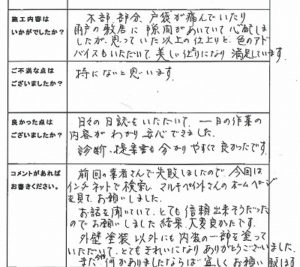 施工内容は
いかがでしたか？
木部部分、戸袋が痛んでいたり
雨戸の敷居に隙間があいていて心配しま
したが、思っていた以上の仕上りと、色のアド
バイスもいただいて美しい仕上りになり満足しています
ご不満な点は
ございましたか？
特にないと思います。
良かった点は
ございましたか？
日々の日誌をいただいて、一日の作業の
内容がわかり安心できました。
診断、提案書も分かりやすくて良かったです。
コメントがあれば
お書きください。
前回の業者さんで失敗しましたので今回は
インターネットで検索しマルキペイントさんのホームページ
を見て、お願いしました。
お話を聞いていて、とても信頼出来そうだった
のでお願いしました 結果、大変良かったです。
外壁塗装以外にも内装の一部を塗って
いただいて、とてもきれいになりありがとうございました。
また何かありましたならば宜しくお願い致しま